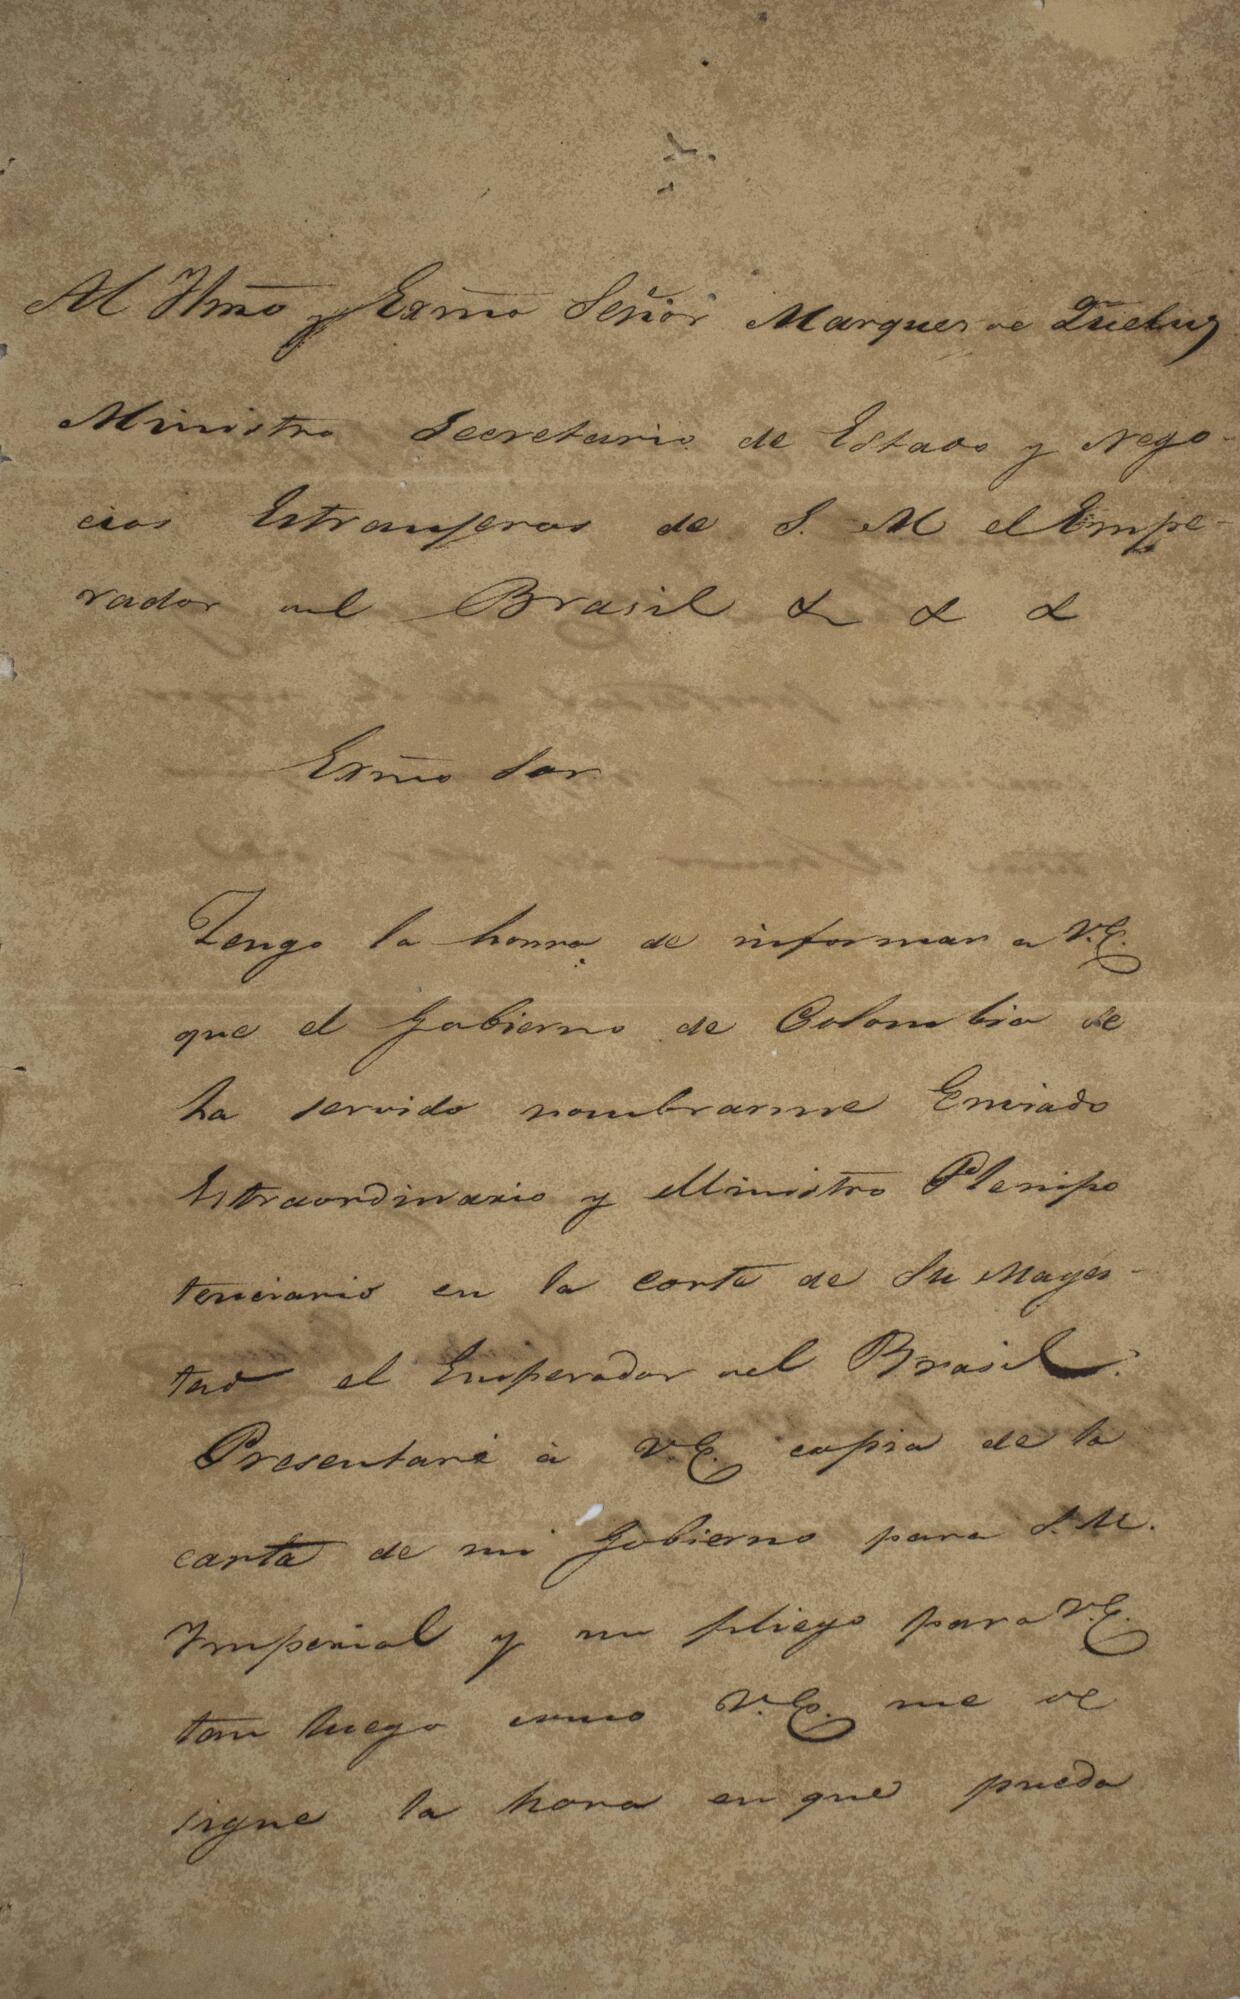 Al Ylmõ y Exmõ Señor Marques de Queluz
Ministro Secretario de Estado y Nego-
cios Estranjeros de S. M el Empe-
rador del Brasil & & &
Exmõ Sor
Tengo la honra de informar a V.E.
que el Gobierno de Colombia se
ha servido nombrarme Enviado
Estraordinario y Ministro Plenipo
tenciario en la corte de Su Mages-
tad el Emperador del Brasil.
Presentaré à V.E. copia de la
carta de mi Gobierno para S.M.
Ymperial y un pliego para V.E.
tan luego como V.E. me de
signe la hora en que pueda